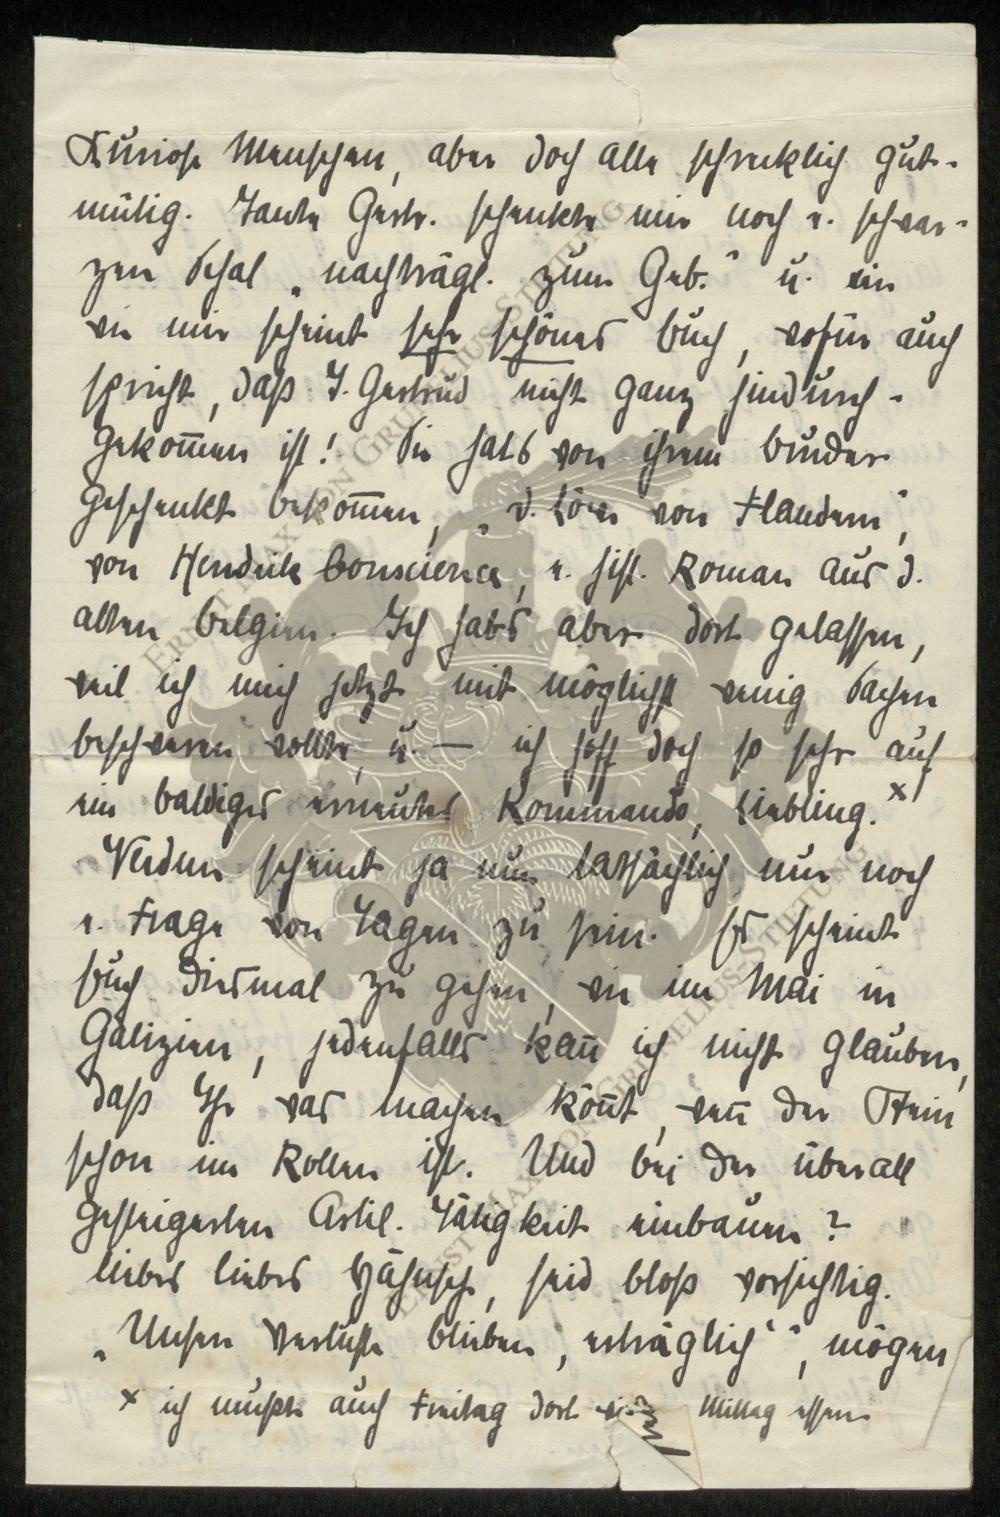 Kuriose Menschen, aber doch alle schrecklich gut-
mütig. Tante Gertr. schenkte mir noch e. schwar-
zen Schal „nachträgl. zum Geb.“ u. ein
wie mir scheint sehr schönes Buch, wofür auch
spricht, daß T. Gertrud nicht ganz hindurch-
gekom̅en ist! Sie hats von ihrem Bruder
geschenkt bekom̅en, „D. Löwe von Flandern“,
von Hendrik Conscience, e. hist. Roman aus d.
alten Belgien. Ich habs aber dort gelassen,
weil ich mich jetzt mit möglichst wenig Sachen
beschweren wollte, u. — ich hoff doch so sehr auf
ein baldiges erneutes Kommando, Liebling. x
Verdun scheint ja nun tatsächlich nur noch
e. Frage von Tagen zu sein. Es scheint
Euch diesmal zu gehen, wie im Mai in
Galizien, jedenfalls kan̅ ich nicht glauben,
daß Ihr was machen kön̅t, wen̅ der Stein
schon im Rollen ist. Und bei der überall
gesteigerten Artil. Tätigkeit einbauen?
Liebes liebes Hähnsche, seid bloß vorsichtig.
„Unsere Verluste blieben ‚erträglich‘“, mögen
x ich mußte auch Freitag dort Mittag essen
ERNST MAX VON GRUNELIUS-STIFTUNG
ERNST MAX VON GRUNELIUS-STIFTUNG